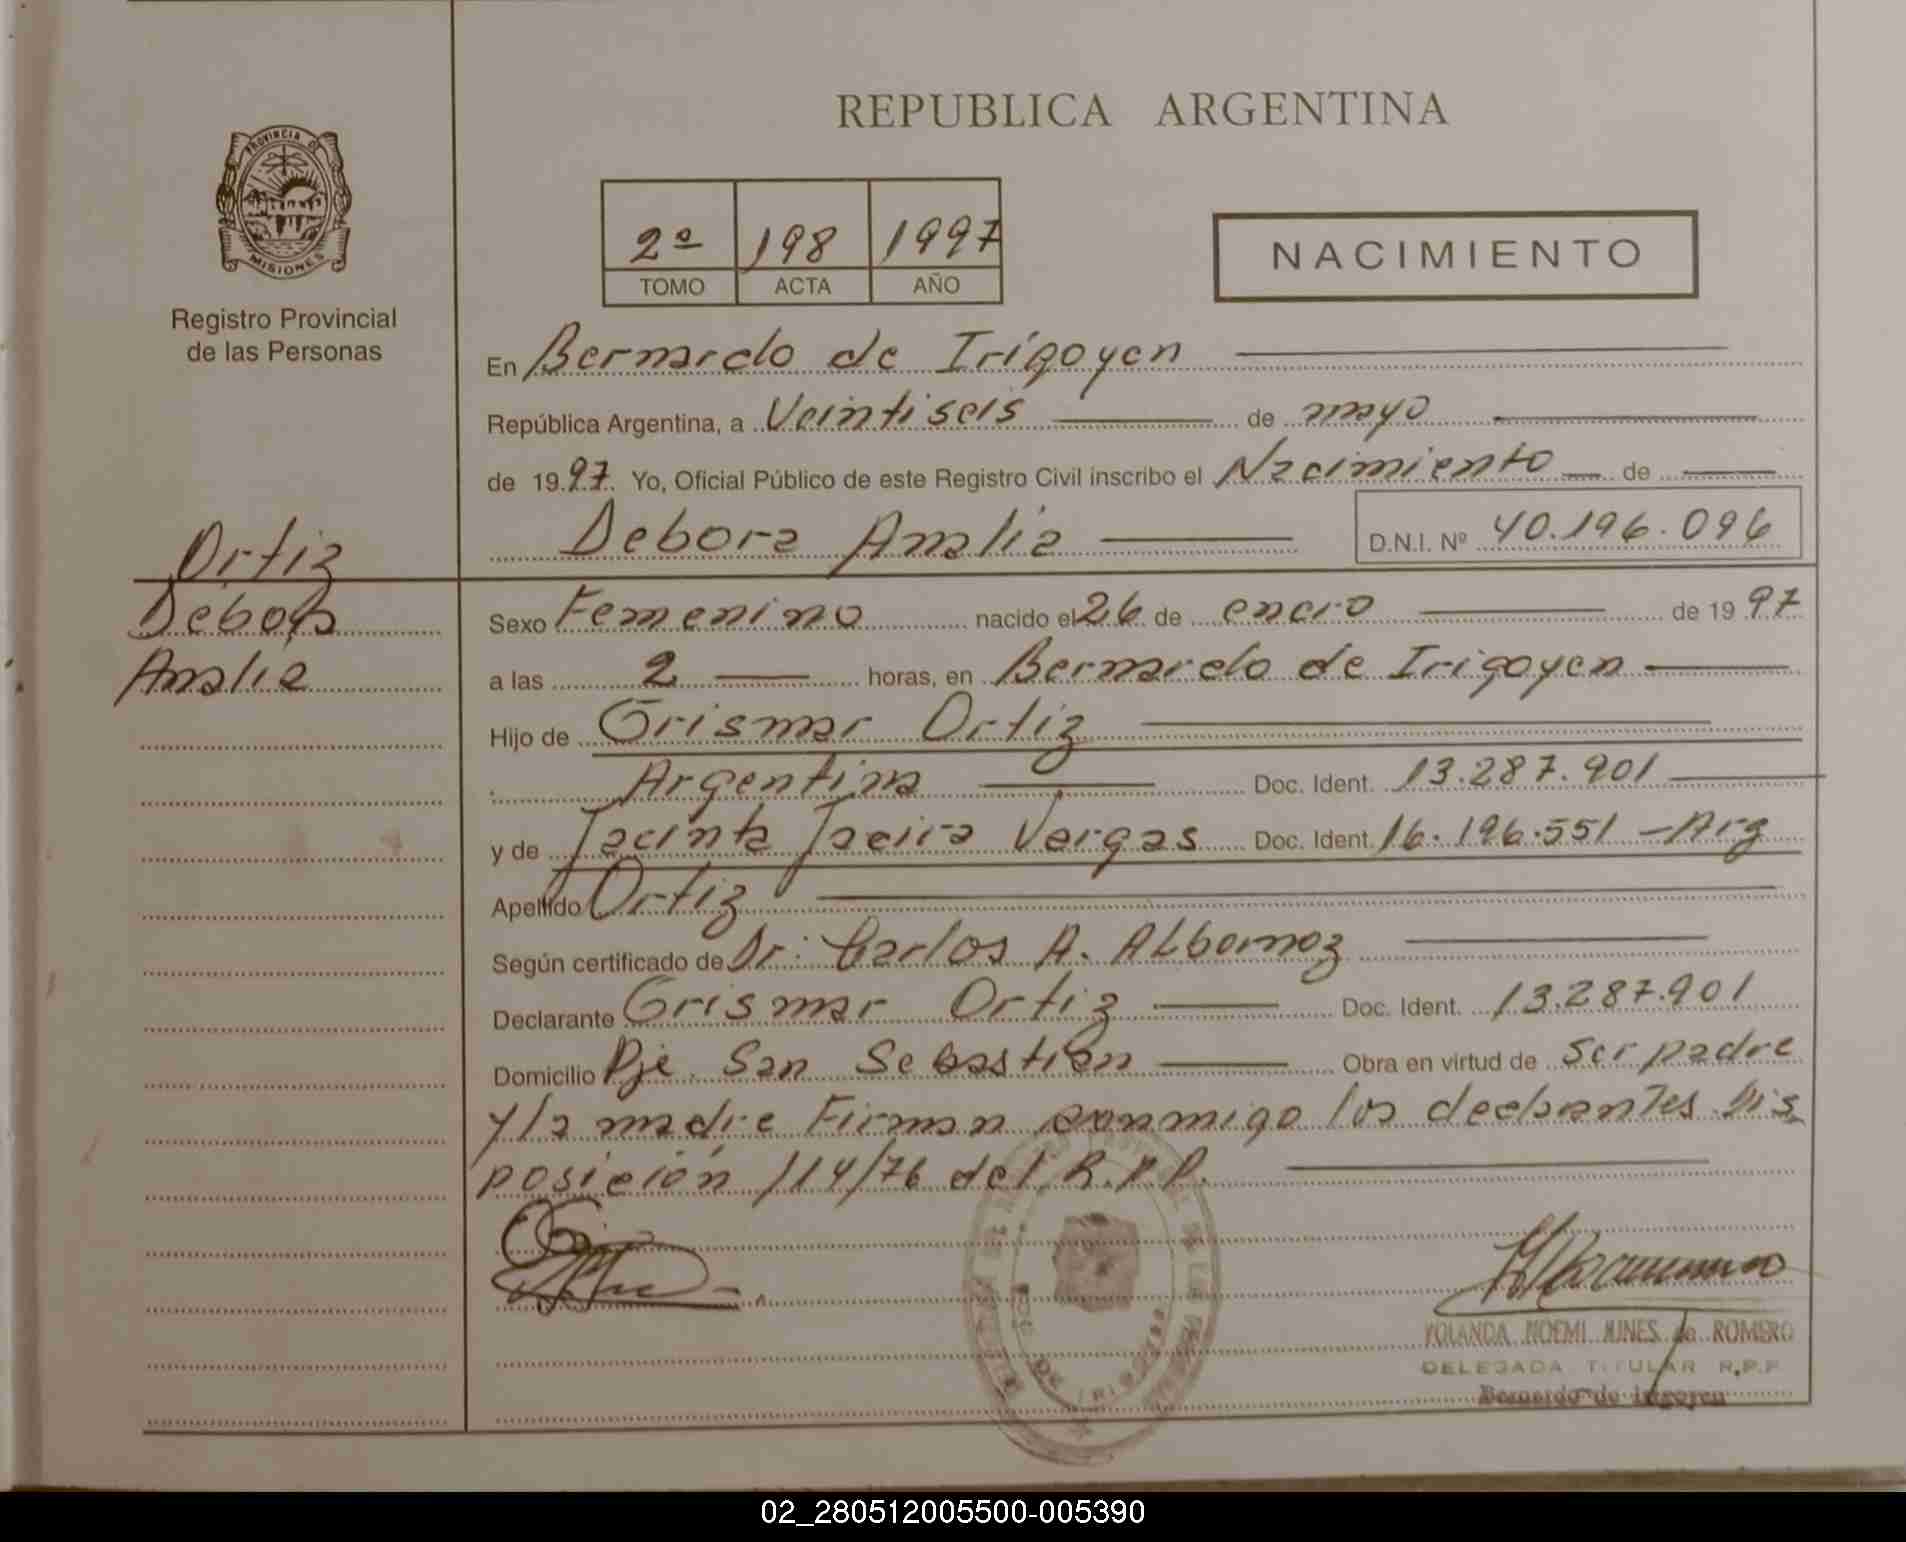 REPUBLICA ARGENTINA
PROVINCIA DE
MISIONES
Registro Provincial
de las Personas
2º 198 1997
TOMO ACTA AÑO
NACIMIENTO
En Bernardo de Irigoyen
República Argentina, a Veintiseis de mayo
de 1997 Yo, Oficial Público de este Registro Civil inscribo el Nacimiento de
Debora Analia D.N.I. Nº 40.196.096
Ortiz
Debora
Analia
Sexo Femenino nacido el 26 de enero de 1997
a las 2 horas, en Bernardo de Irigoyen
Hijo de Grismar Ortiz
Argentina Doc. Ident. 13.287.901
y de Jacinta Vargas Doc. Ident. 16.196.551 - Arg
Apellido Ortiz
Según certificado de Dr: Carlos A. Albornoz
Declarante Grismar Ortiz Doc. Ident. 13.287.901
Domicilio Pje. San Sebastian Obra en virtud de ser padre
y la madre Firman conmigo los declarantes Dis
posición 114/76 del R.P.P.
YOLANDA NOEMI de ROMERO
DELEGADA TITULAR R.P.P
Bernardo de Irigoyen
02_280512005500-005390